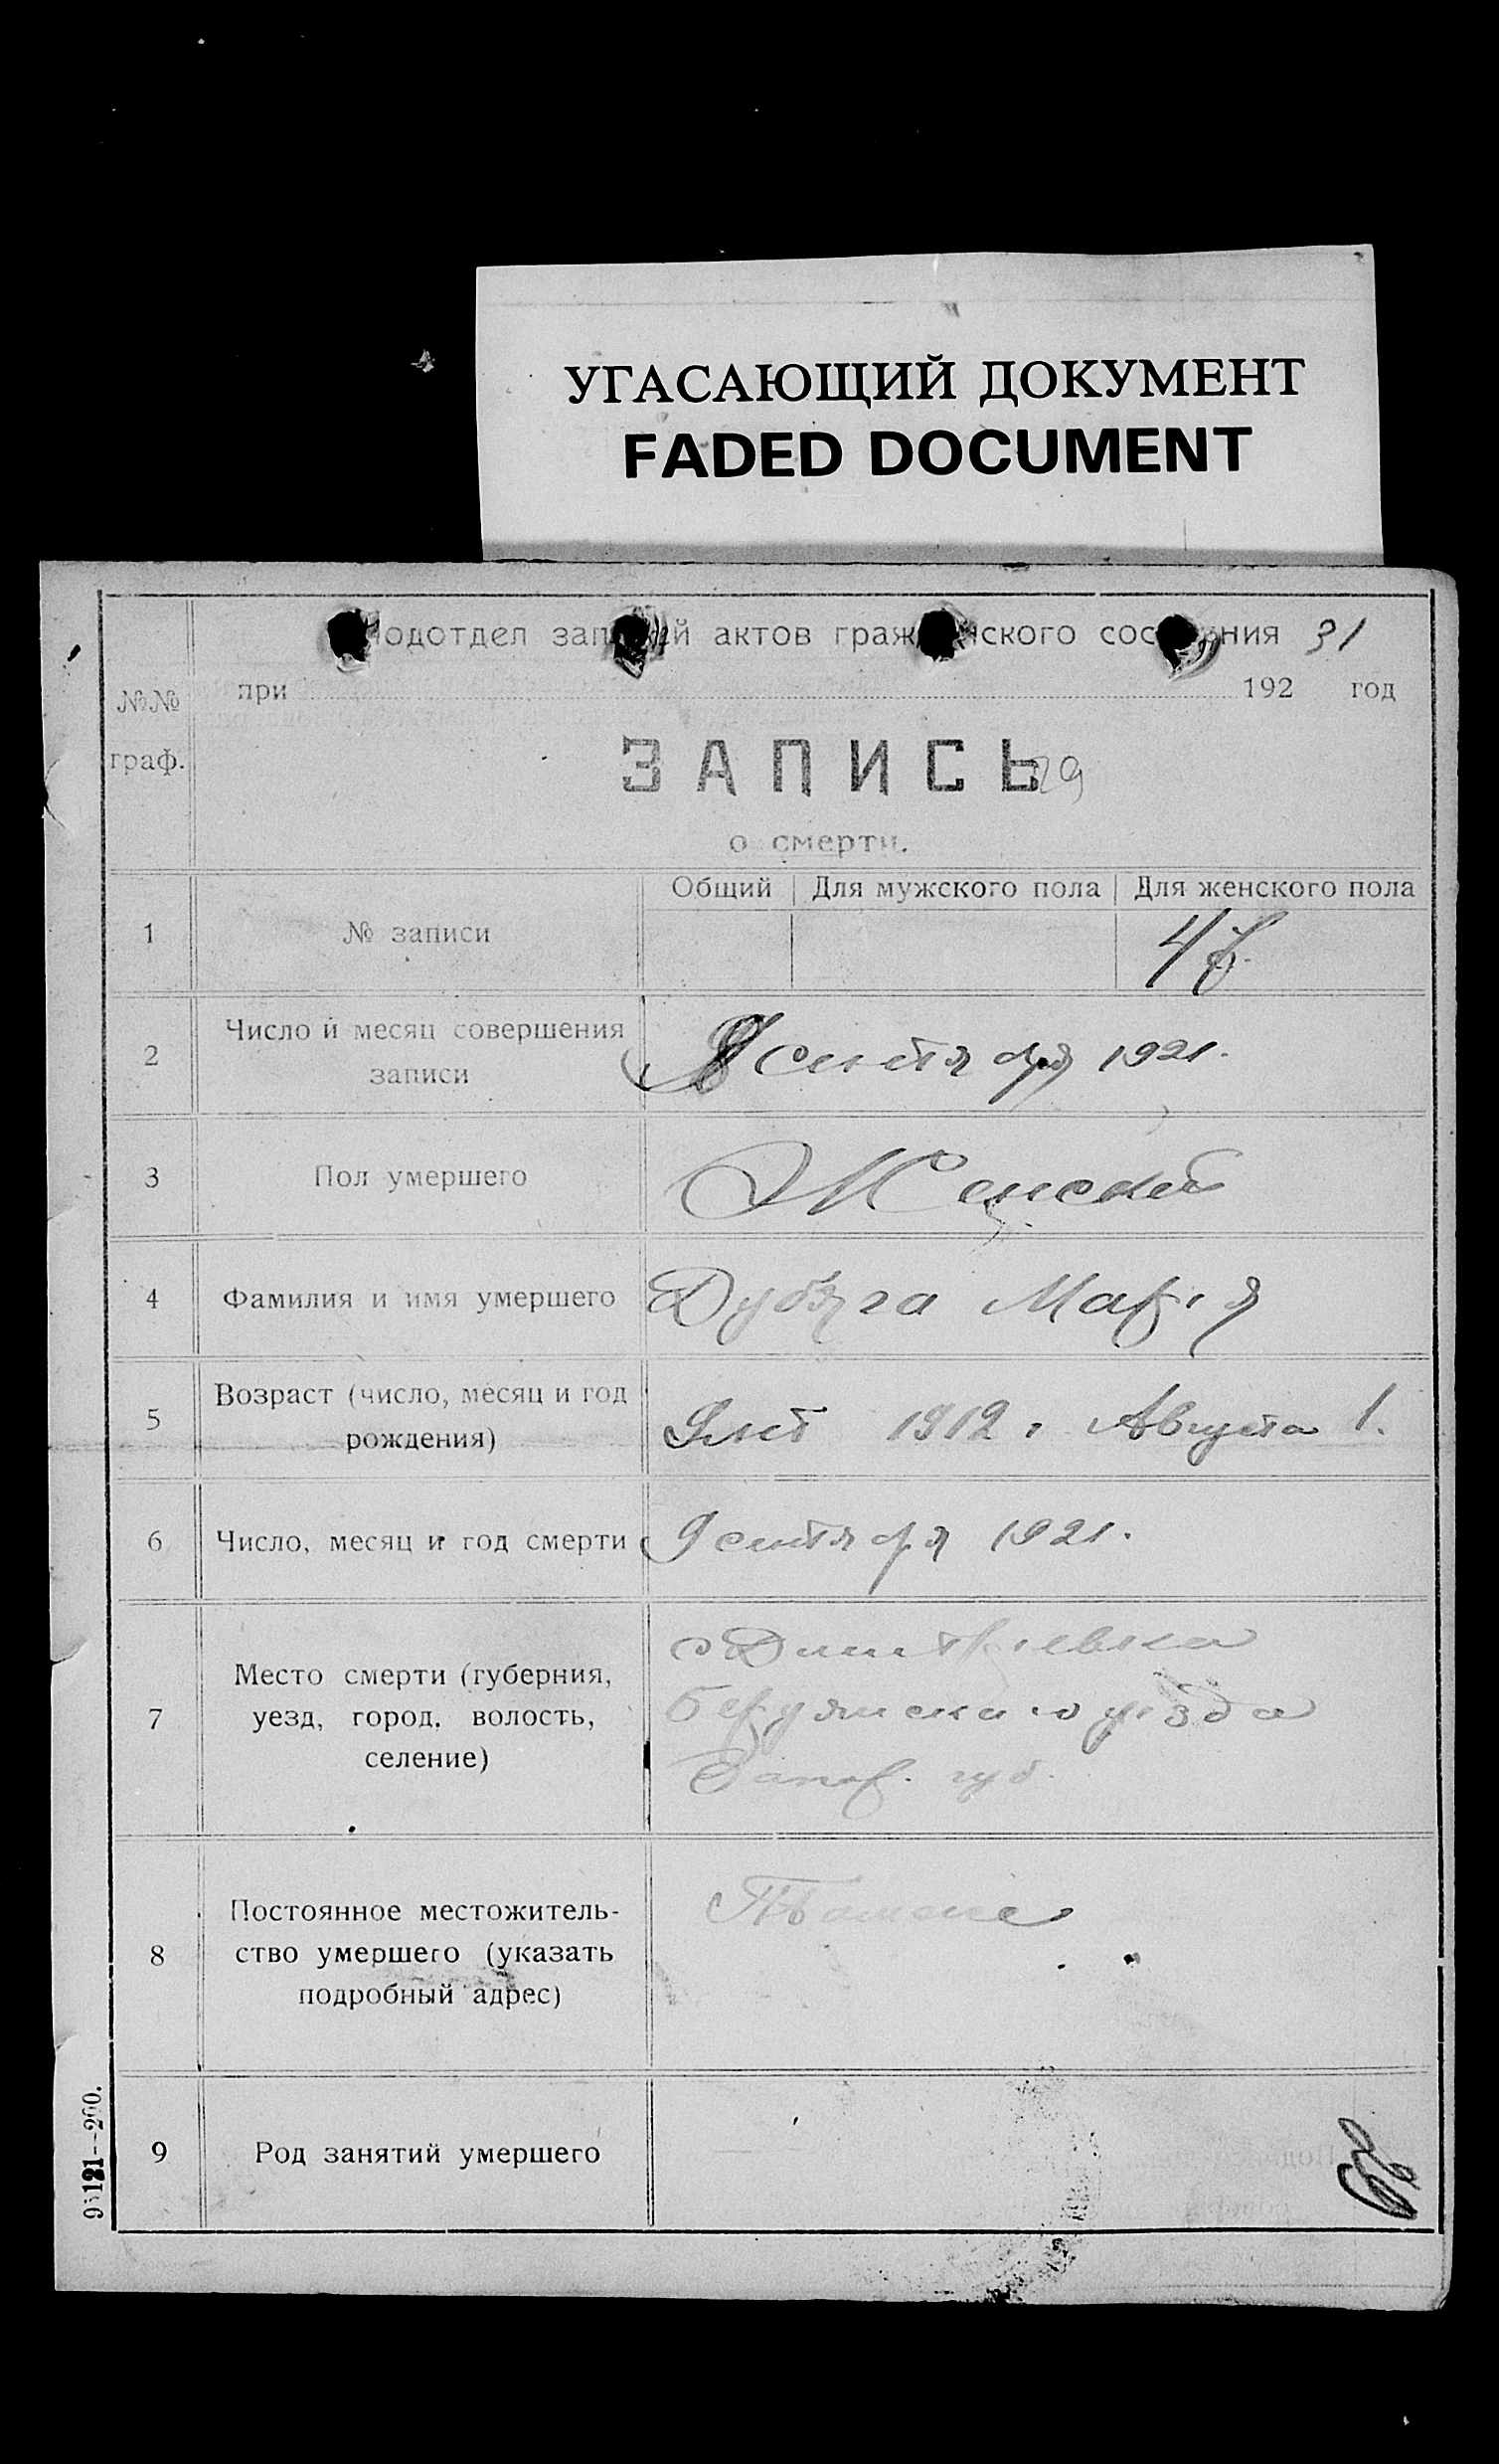 УГАСАЮЩИЙ ДОКУМЕНТ
FADED DOCUMENT
Подотдел записей актов гражданского состояния 31
№№ граф.
при 192 год
ЗАПИСЬ
29
о смерти.
Общий Для мужского пола Для женского пола
1 № записи
2 Число и месяц совершения записи
9 сентября 1921.
3 Пол умершего
Женский
4 Фамилия и имя умершего
Дубяга Марiя
5 Возраст (число, месяц и год рождения)
9 лет 1912 г. Августа 1.
6 Число, месяц и год смерти
9 сентября 1921.
7 Место смерти (губерния, уезд, город, волость, селение)
с Дмитрiевка
Бердянскаго уезда
Запор. губ.
8 Постоянное местожительство умершего (указать подробный адрес)
9 Род занятий умершего